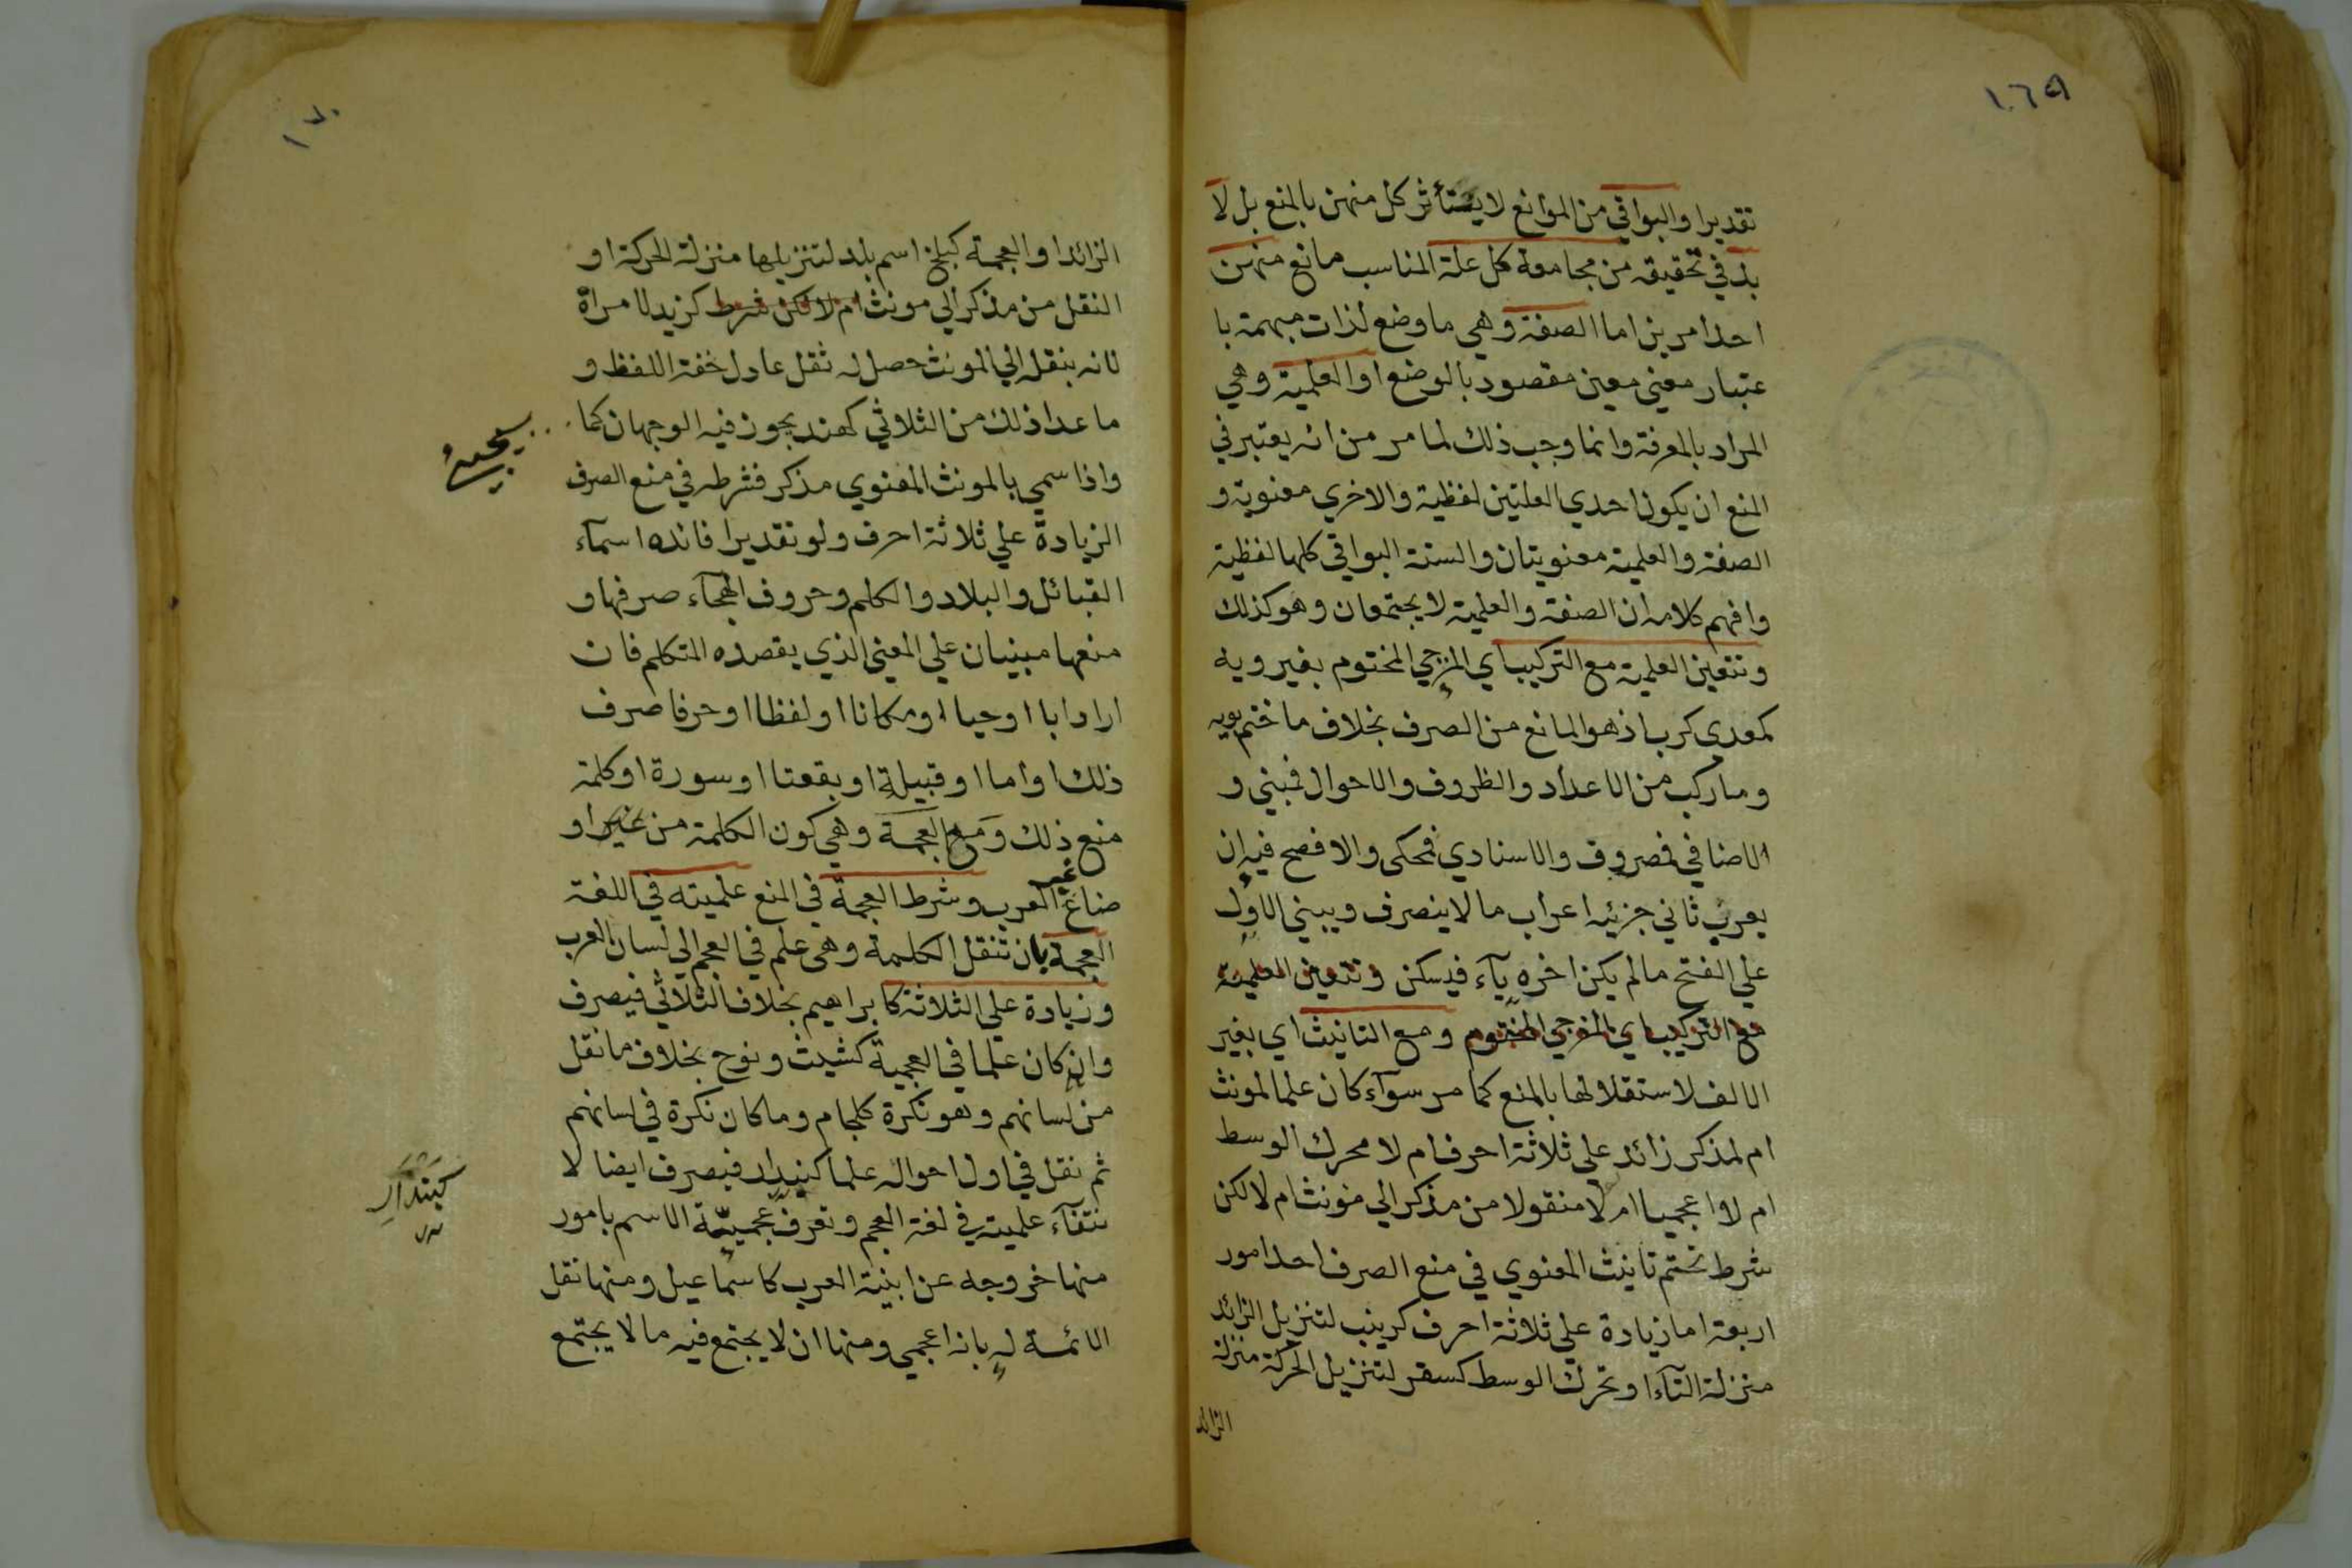 ١٦٩
تقديرا والبواقي من الموانع لا يستأثر كل منهن بالمنع بل لا
بد في تحقيقه من مجامعة كل علة المناسب مانع منهن
احد امرين اما الصفة وهي ما وضع لذات مبهمة با
عتبار معني معين مقصود بالوضع او العلمية وهي
المراد بالمعرفة وانما وجب ذلك لما مر من انه يعتبر في
المنع ان يكون احدي العلتين لفظية والاخري معنوية و
الصفة والعلمية معنويتان والستة البواقي كلها لفظية
وافهم كلامه ان الصفة والعلمية لا يجتمعان وهو كذلك
وتتعين العلمية مع التركيب اي المزجي المختوم بغير ويه
كمعدي كرب اذ هو المانع من الصرف بخلاف ما ختم بويه
وما ركب من الاعداد والظروف والاحوال فمبني و
الاضافي فمصروف والاسنادي فمحكي والافصح فيه ان
يعرب ثاني جزئيه اعراب ما لا ينصرف ويبني الاول
علي الفتح ما لم يكن اخره يآء فيسكن وتتعين العلمية
مع التركيب اي المزجي المختوم ومع التانيث اي بغير
الالف لاستقلالها بالمنع كما مر سوآء كان علما لمونث
ام لمذكر زائد علي ثلاثة احرف ام لا محرك الوسط
ام لا اعجميا ام لا منقولا من مذكر الي مونث ام لا لكن
شرط تحتم تانيث المعنوي في منع الصرف احد امور
اربعة اما زيادة علي ثلاثة احرف كزينب لتنزيل الزائد
منزلة التآء او تحرك الوسط كسقر لتنزيل الحركة منزلة
الزائد
١٧٠
الزائد او العجمة كبلخ اسم بلد لتنزيلها منزلة الحركة او
النقل من مذكر الي مونث ام لا لكن شرط كزيد لامراة
لانه بنقله الي المونث حصل له ثقل عادل خفة اللفظ و
ما عدا ذلك من الثلاثي كهند يجوز فيه الوجهان كما
سيجيء
واذا سمي بالمونث المعنوي مذكر فشرطه في منع الصرف
الزيادة علي ثلاثة احرف ولو تقديرا فائده اسمآء
القبائل والبلاد والكلم وحروف الهجآء صرفها و
منعها مبنيان علي المعني الذي يقصده المتكلم فان
اراد ابا او حيا او مكانا او لفظا او حرفا صرف
ذلك او اما او قبيلة او بقعتا او سورة او كلمة
منع ذلك ومع العجمة وهي كون الكلمة من غير او
ضاع غير العرب وشرط العجمة في المنع علميته في اللغة
العجمة بان تنقل الكلمة وهي علم في العجم الي لسان العرب
وزيادة علي الثلاثة كابراهيم بخلاف الثلاثي فيصرف
وان كان علما في العجمية كشيث ونوح بخلاف ما نقل
من لسانهم وهو نكرة كلجام وما كان نكرة في لسانهم
ثم نقل في اول احواله علما كبندار فيصرف ايضا لا
كبندار
نتفآء علميته في لغة العجم وتعرف عجميّة الاسم بامور
منها خروجه عن ابنية العرب كاسماعيل ومنها نقل
الائمة له بانه اعجمي ومنها ان لا يجتمع فيه ما لا يجتمع